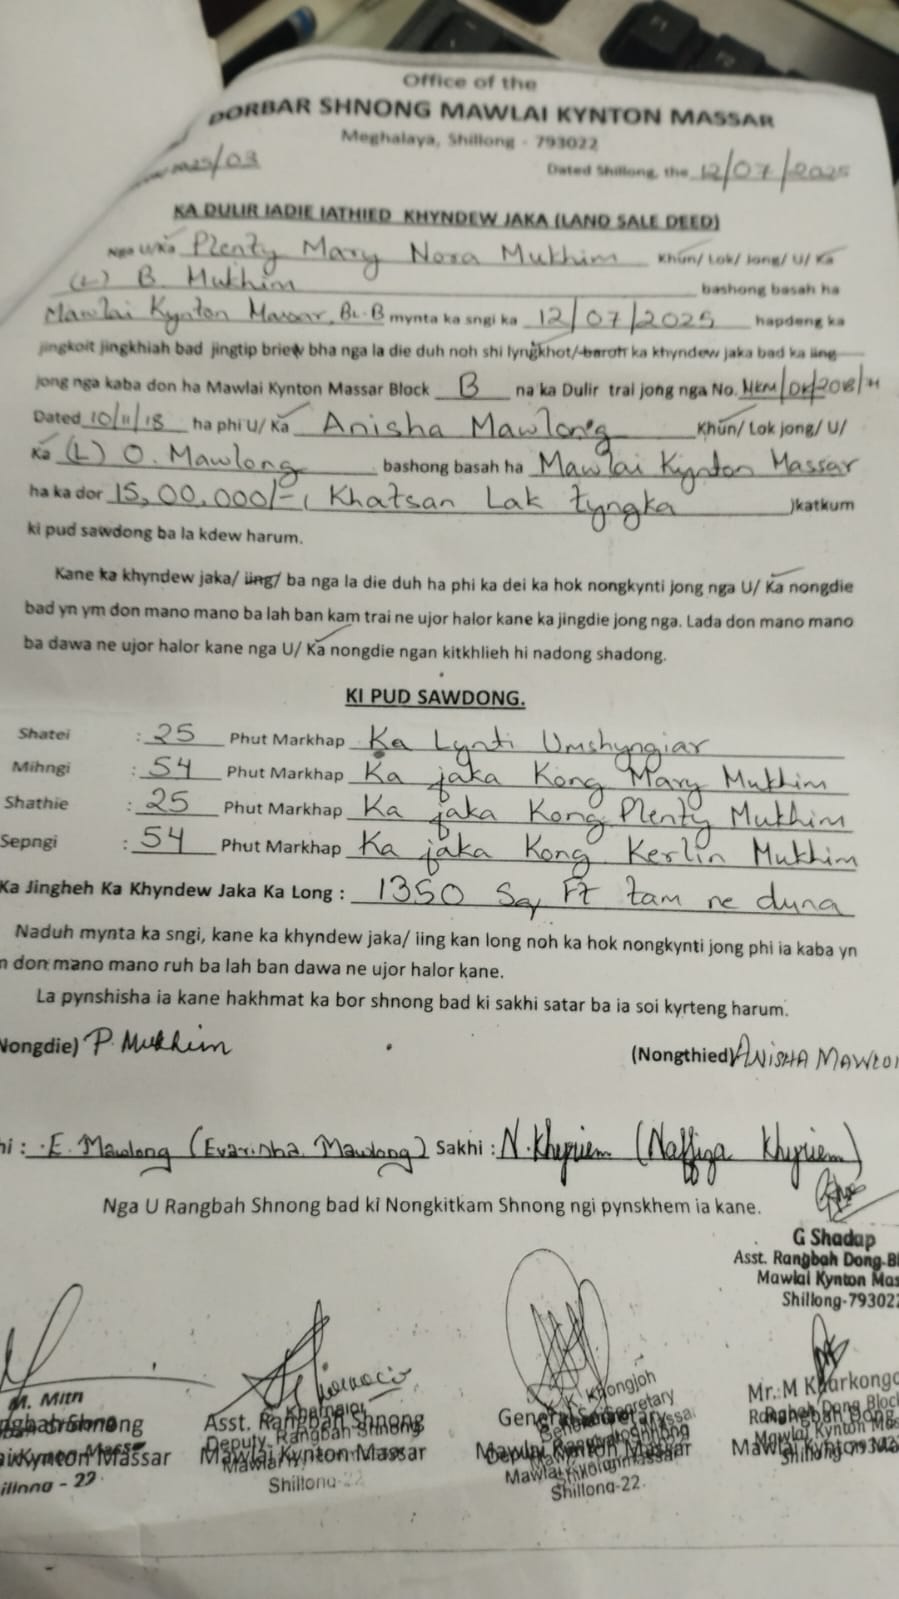 Office of the
DORBAR SHNONG MAWLAI KYNTON MASSAR
Meghalaya, Shillong - 793022
/03 Dated Shillong, the 12/07/2025
KA DULIR IADIE IATHIED KHYNDEW JAKA (LAND SALE DEED)
Nga U/Ka Plenty Mary Nora Mukhim Khun/ Lok/ Jong/ U/ Ka
(L) B. Mukhim bashong basah ha
Mawlai Kynton Massar, BL.B mynta ka sngi ka 12/07/2025 hapdeng ka
jingkoit jingkhiah bad jingtip briew bha nga la die duh noh shi lyngkhot/ baroh ka khyndew jaka bad ka iing
jong nga kaba don ha Mawlai Kynton Massar Block B na ka Dulir trai jong nga No.
Dated 10/11/18 ha phi U/ Ka Anisha Mawlong Khun/ Lok jong/ U/
Ka (L) O. Mawlong bashong basah ha Mawlai Kynton Massar
ha ka dor 15,00,000/- ( Khatsan Lak tyngka )katkum
ki pud sawdong ba la kdew harum.
Kane ka khyndew jaka/ iing/ ba nga la die duh ha phi ka dei ka hok nongkynti jong nga U/ Ka nongdie
bad yn ym don mano mano ba lah ban kam trai ne ujor halor kane ka jingdie jong nga. Lada don mano mano
ba dawa ne ujor halor kane nga U/ Ka nongdie ngan kitkhlieh hi nadong shadong.
KI PUD SAWDONG.
Shatei : 25 Phut Markhap Ka Lynti Umshyngiar
Mihngi : 54 Phut Markhap Ka jaka Kong Mary Mukhim
Shathie : 25 Phut Markhap Ka jaka Kong Plenty Mukhim
Sepngi : 54 Phut Markhap Ka jaka Kong Kerlin Mukhim
Ka Jingheh Ka Khyndew Jaka Ka Long : 1350 Sq Ft tam ne duna
Naduh mynta ka sngi, kane ka khyndew jaka/ iing kan long noh ka hok nongkynti jong phi ia kaba yn
don mano mano ruh ba lah ban dawa ne ujor halor kane.
La pynshisha ia kane hakhmat ka bor shnong bad ki sakhi satar ba ia soi kyrteng harum.
Nongdie) P. Mukhim (Nongthied) ANISHA MAWLO
hi : E. Mawlong (Evarisha Mawlong) Sakhi : N. Khyriem (Naffiza Khyriem)
Nga U Rangbah Shnong bad ki Nongkitkam Shnong ngi pynskhem ia kane.
G Shadap
Asst. Rangbah Dong-Bl
Mawlai Kynton Mas
Shillong-79302
M. Mitri Khongjoh Mr. M Kharkongo
Shnong Asst. Rangbah Shnong General Secretary
Kynton Massar Mawlai Kynton Massar Mawlai Kynton Massar Mawlai Kynton
- 22 Shillong-22 Shillong-22.